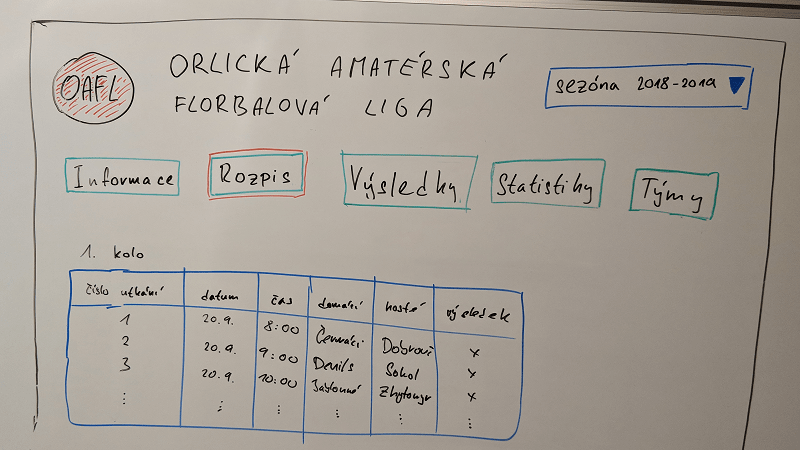 OAFL
ORLICKÁ AMATÉRSKÁ
FLORBALOVÁ LIGA
sezóna 2018-2019
Informace Rozpis Výsledky Statistiky Týmy
1. kolo
číslo utkání datum čas domácí hosté výsledek
1 20.9. 8:00 Čermáci Dobrouč x
2 20.9. 9:00 Devils Sokol x
3 20.9. 10:00 Jablonné x